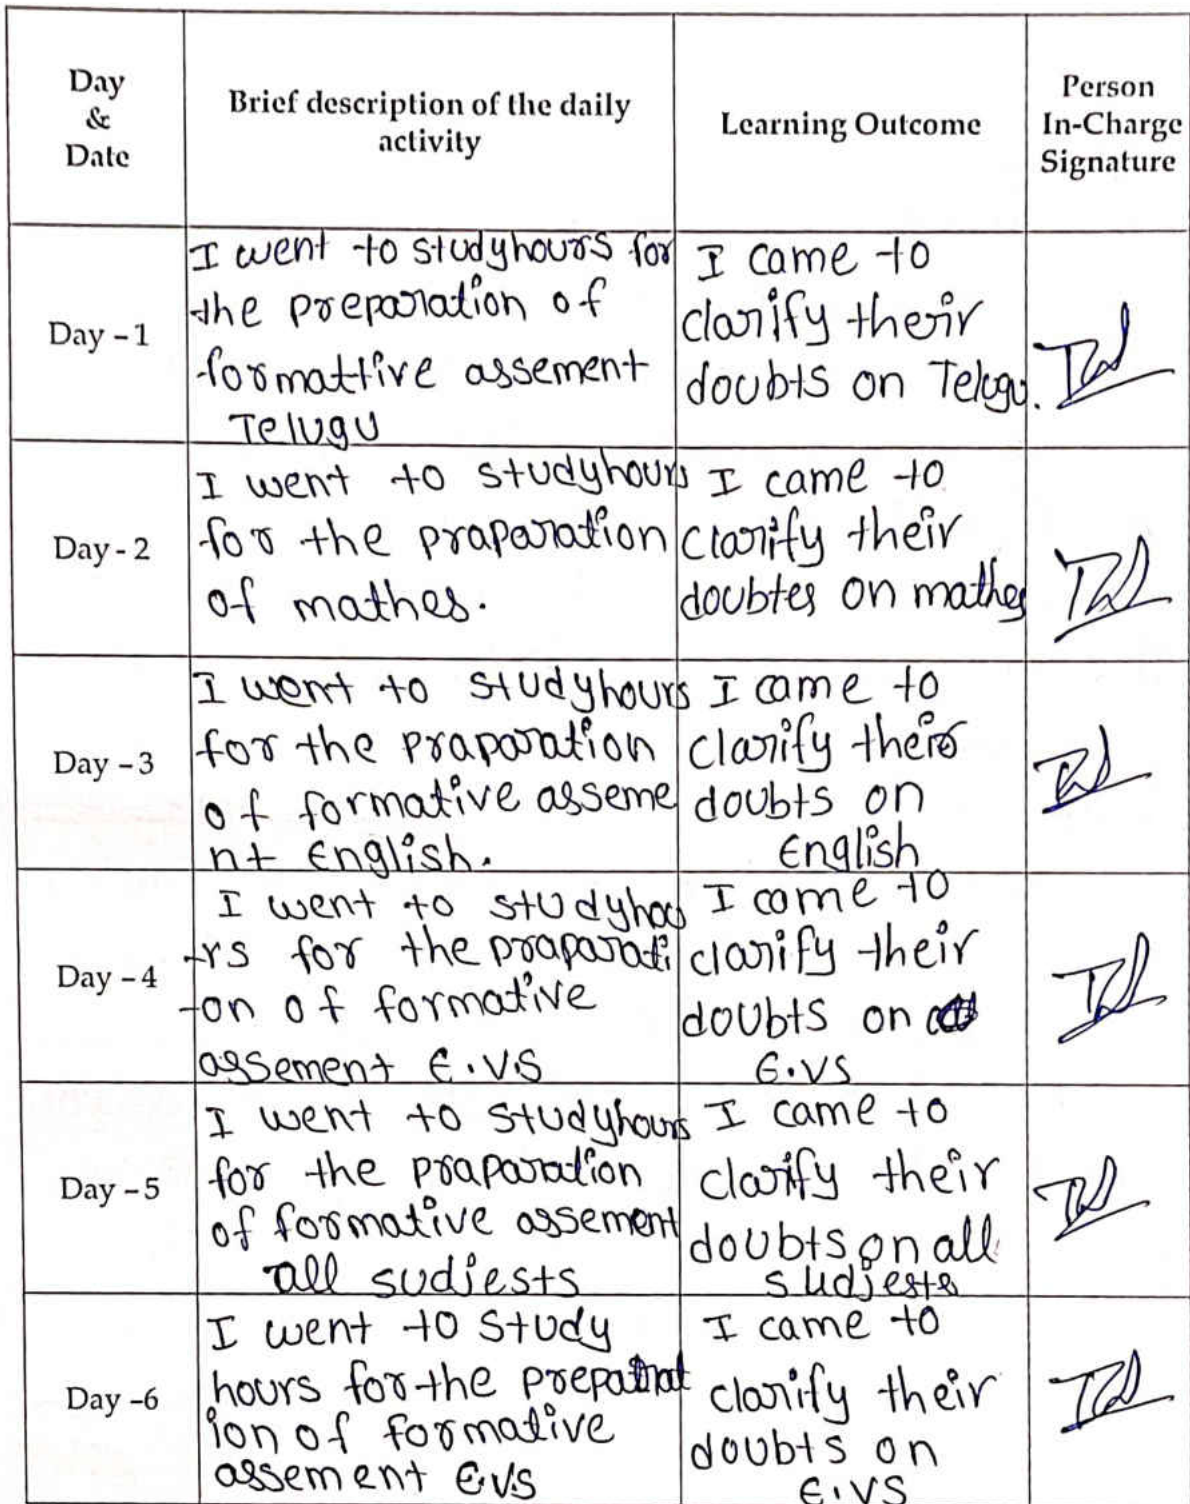 Day
&
Date
Brief description of the daily
activity
Learning Outcome
Person
In-Charge
Signature
Day - 1
I went to studyhours for
the preparation of
formattive assement
Telugu
I came to
clarify their
doubts on Telugu.
Day - 2
I went to studyhours
for the praparation
of mathes.
I came to
clarify their
doubtes on mathes
Day - 3
I went to studyhours
for the praparation
of formative asseme
nt English.
I came to
clarify their
doubts on
English
Day - 4
I went to studyhou
-rs for the praparati
-on of formative
assement E.VS
I came to
clarify their
doubts on
E.VS
Day - 5
I went to studyhours
for the praparation
of formative assement
all sudjests
I came to
clarify their
doubts on all
sudjests
Day -6
I went to study
hours for the preparat
ion of formative
assement E.VS
I came to
clarify their
doubts on
E.VS